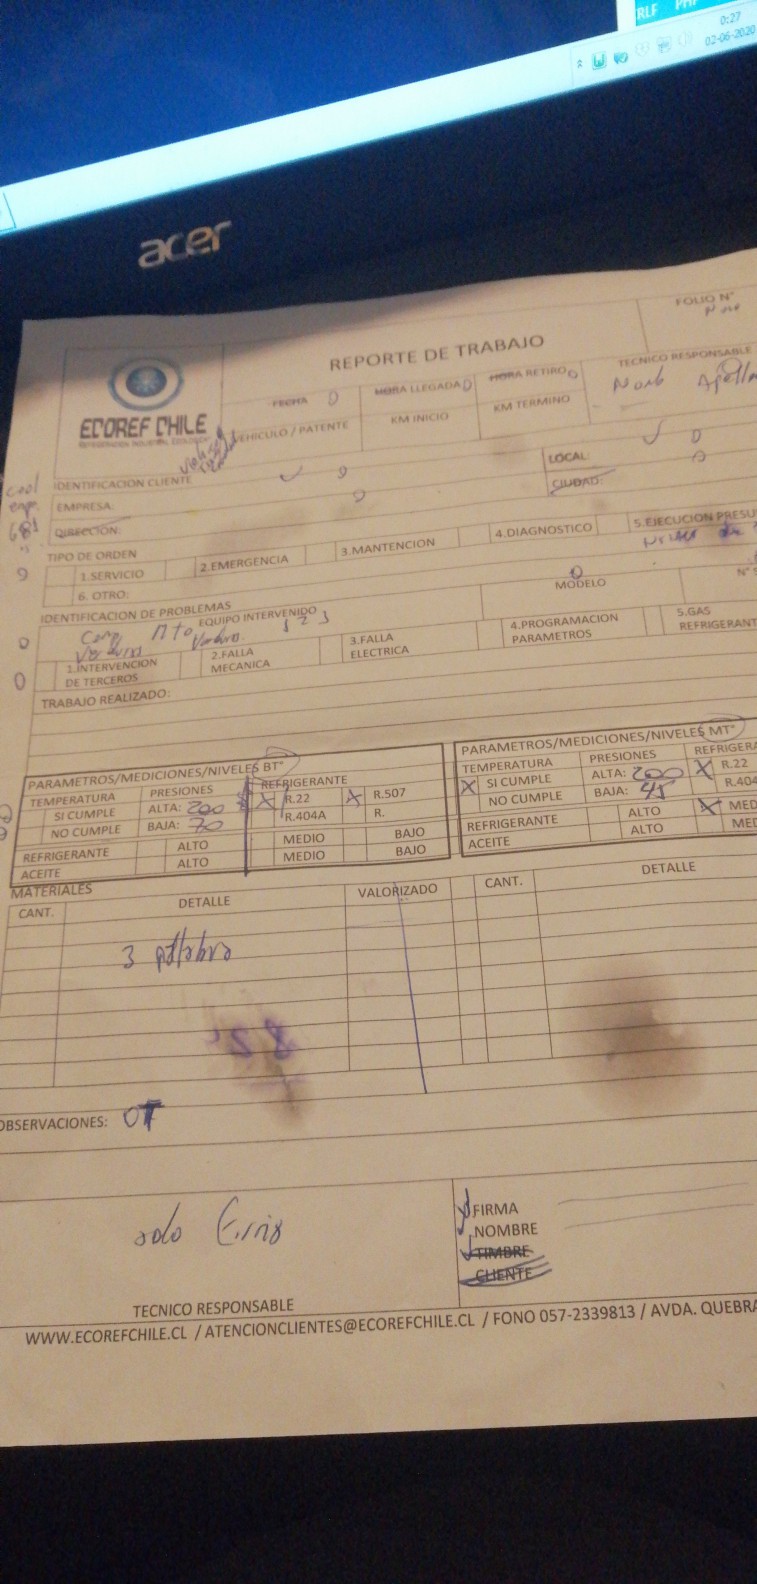 RLF
0:27
02-06-2020
acer
FOLIO N°
REPORTE DE TRABAJO
FECHA 0 HORA LLEGADA 0 HORA RETIRO 0 TECNICO RESPONSABLE
ECOREF CHILE
VEHICULO / PATENTE KM INICIO KM TERMINO
IDENTIFICACION CLIENTE
EMPRESA: LOCAL:
DIRECCIÓN: CIUDAD:
681
TIPO DE ORDEN
1.SERVICIO 2.EMERGENCIA 3.MANTENCION 4.DIAGNOSTICO 5.EJECUCION PRESU
6. OTRO:
IDENTIFICACION DE PROBLEMAS
EQUIPO INTERVENIDO MODELO N°
1 2 3
1.INTERVENCION DE TERCEROS 2.FALLA MECANICA 3.FALLA ELECTRICA 4.PROGRAMACION PARAMETROS 5.GAS REFRIGERANT
TRABAJO REALIZADO:
PARAMETROS/MEDICIONES/NIVELES BT°
TEMPERATURA PRESIONES REFRIGERANTE
SI CUMPLE ALTA: 200 X R.22 X R.507
NO CUMPLE BAJA: 70 R.404A R.
REFRIGERANTE ALTO MEDIO BAJO
ACEITE ALTO MEDIO BAJO
PARAMETROS/MEDICIONES/NIVELES MT°
TEMPERATURA PRESIONES REFRIGERA
X SI CUMPLE ALTA: 200 X R.22
NO CUMPLE BAJA: 45 R.404
REFRIGERANTE ALTO X MED
ACEITE ALTO MED
MATERIALES
CANT. DETALLE VALORIZADO CANT. DETALLE
3
OBSERVACIONES: OT
solo
FIRMA
NOMBRE
TIMBRE
CLIENTE
TECNICO RESPONSABLE
WWW.ECOREFCHILE.CL / ATENCIONCLIENTES@ECOREFCHILE.CL / FONO 057-2339813 / AVDA. QUEBRA